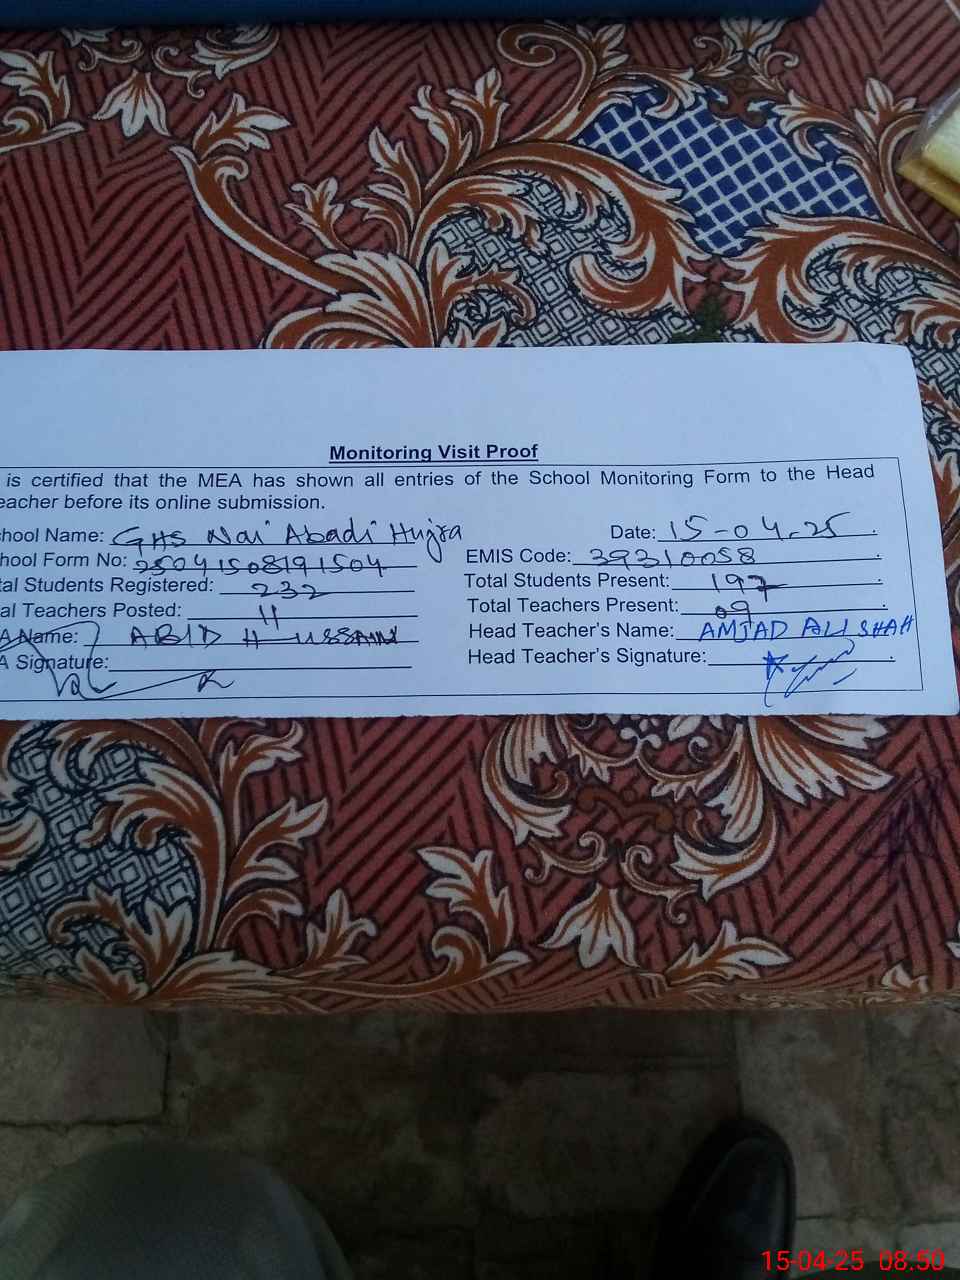 Monitoring Visit Proof
is certified that the MEA has shown all entries of the School Monitoring Form to the Head
eacher before its online submission.
chool Name: GHS Nai Abadi Hujra Date: 15-04-25
chool Form No: 25041508191504 EMIS Code: 39310058
tal Students Registered: 232 Total Students Present: 197
al Teachers Posted: 11 Total Teachers Present: 09
A Name: ABID HUSSAIN Head Teacher's Name: AMJAD ALI SHAH
A Signature: Head Teacher's Signature:
15-04-25 08:50